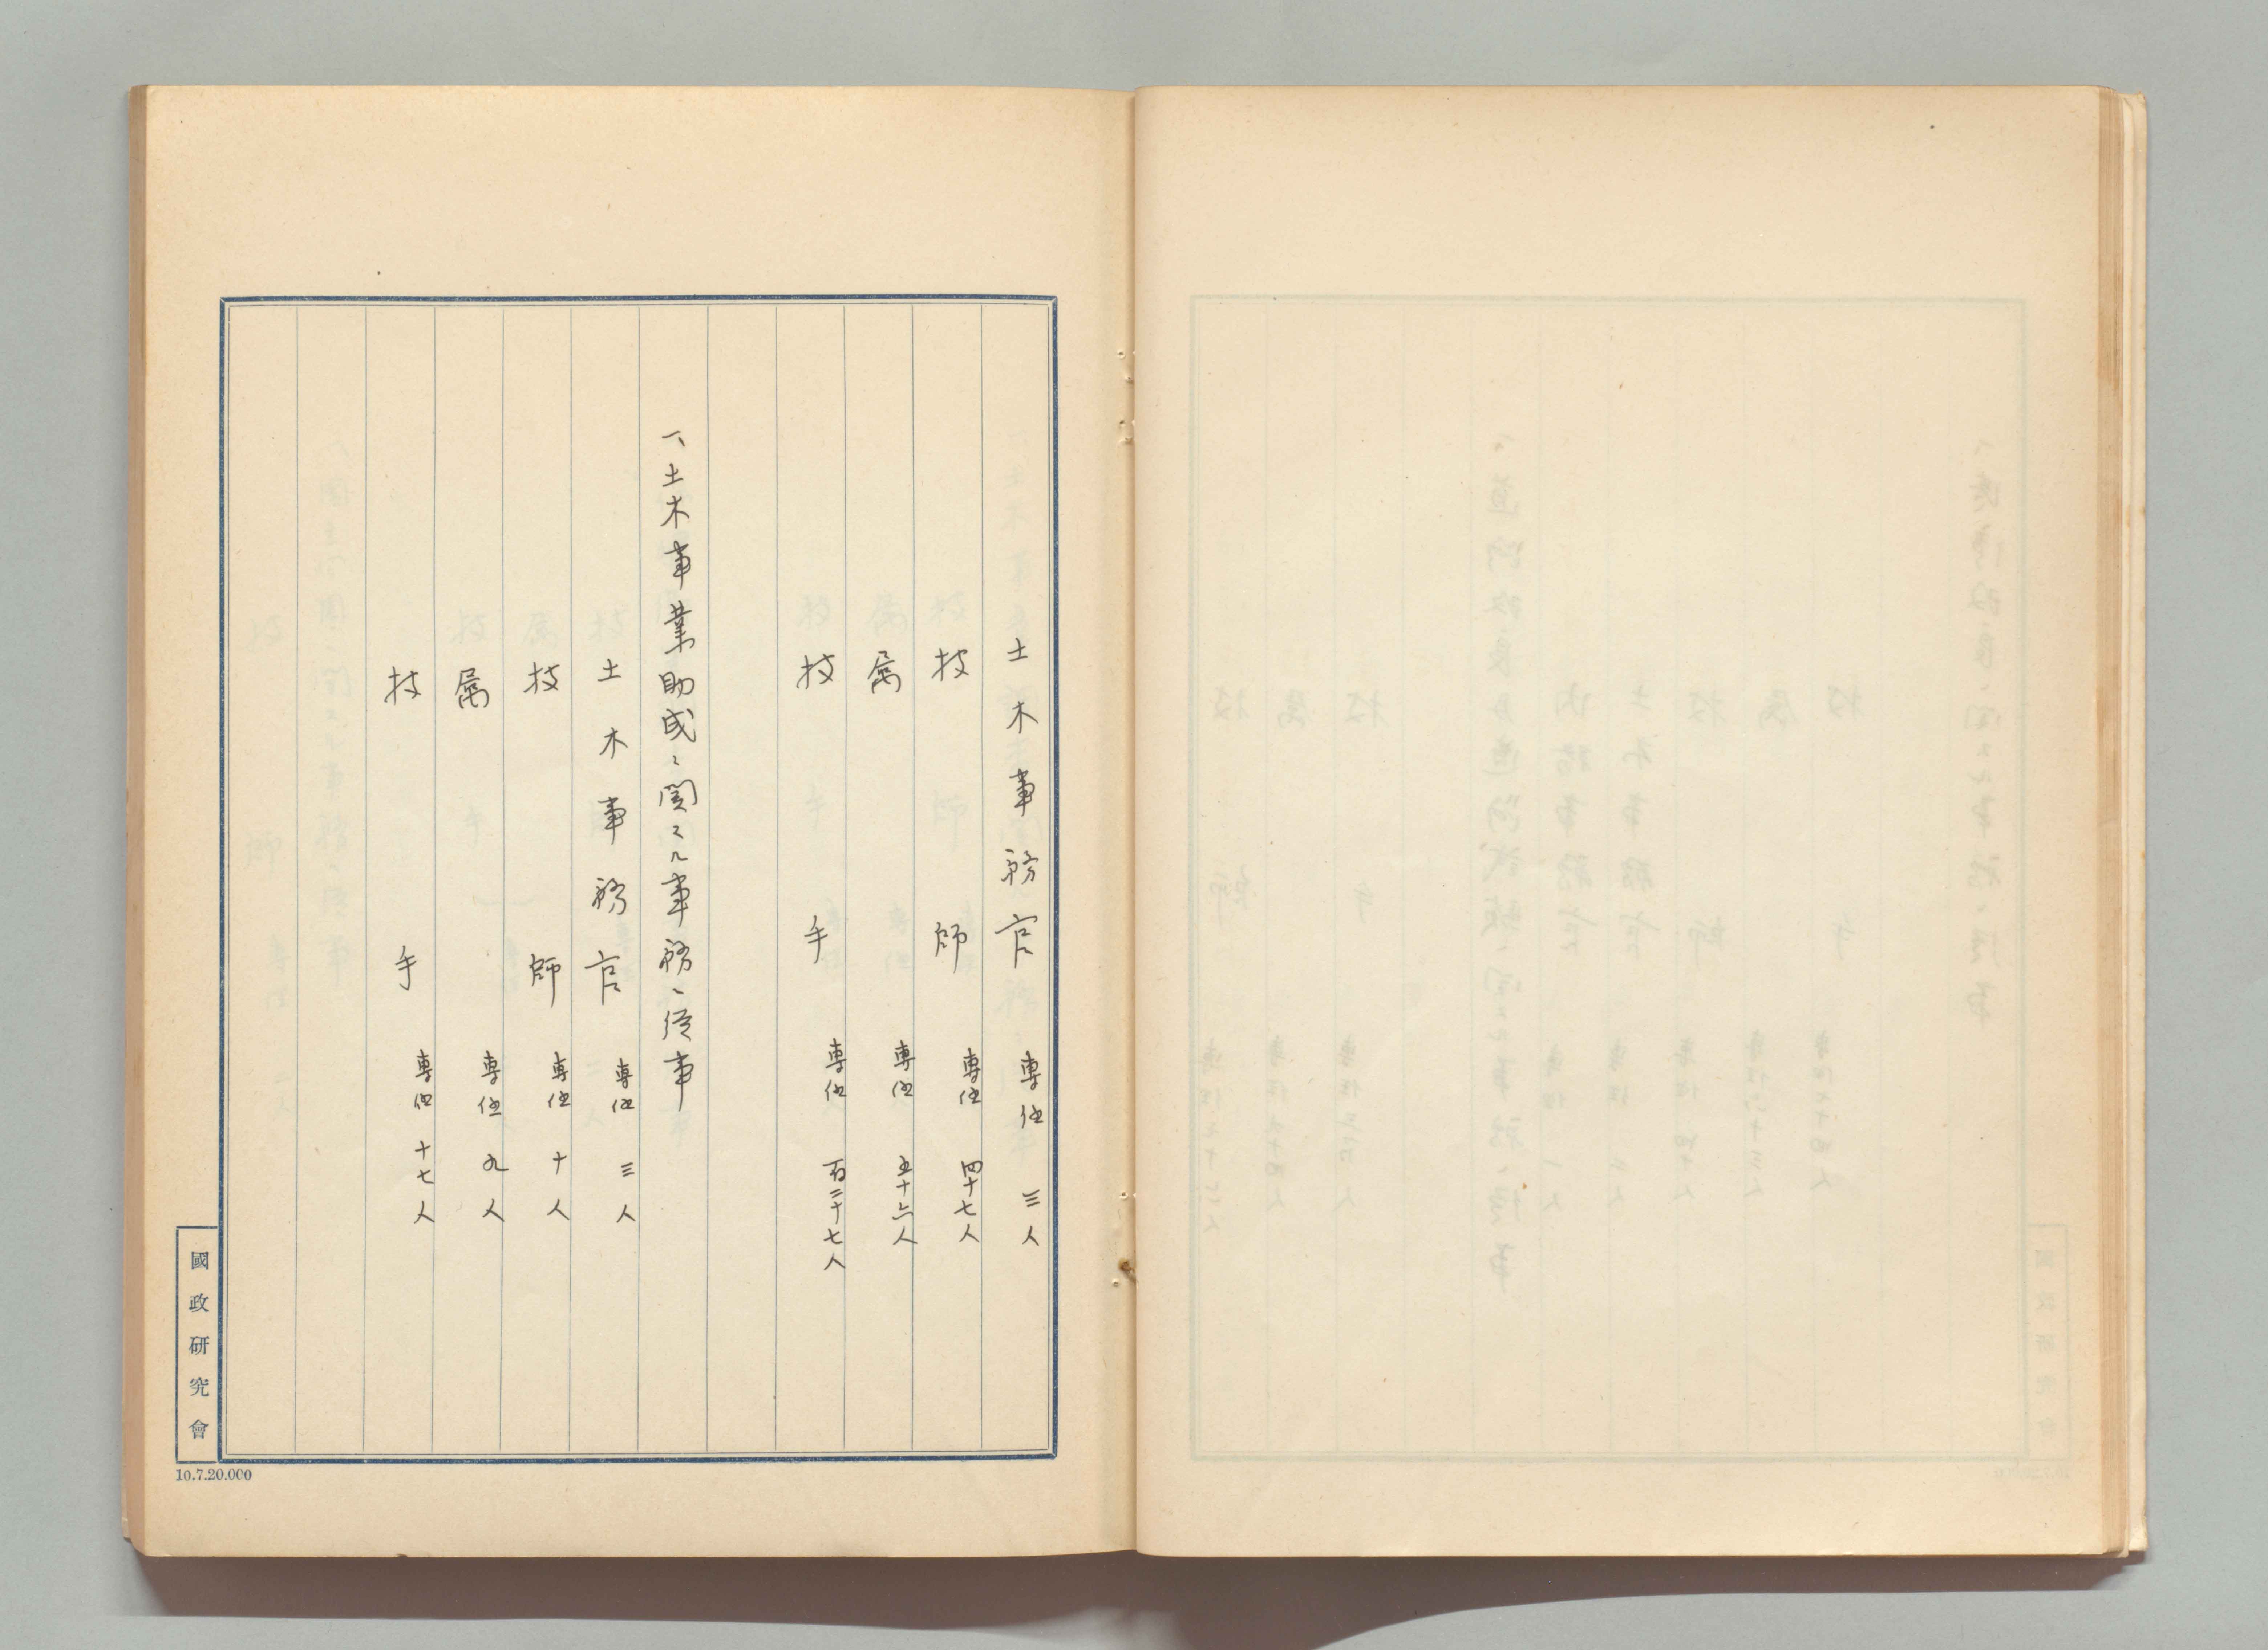 土木事務官 専任 三人
技師 専任 四十七人
属 専任 五十六人
技手 専任 百二十七人
一、土木事業助成ニ関スル事務ニ従事
土木事務官 専任 三人
技師 専任 十人
属 専任 九人
技手 専任 十七人
國政研究會
10.7.20.000